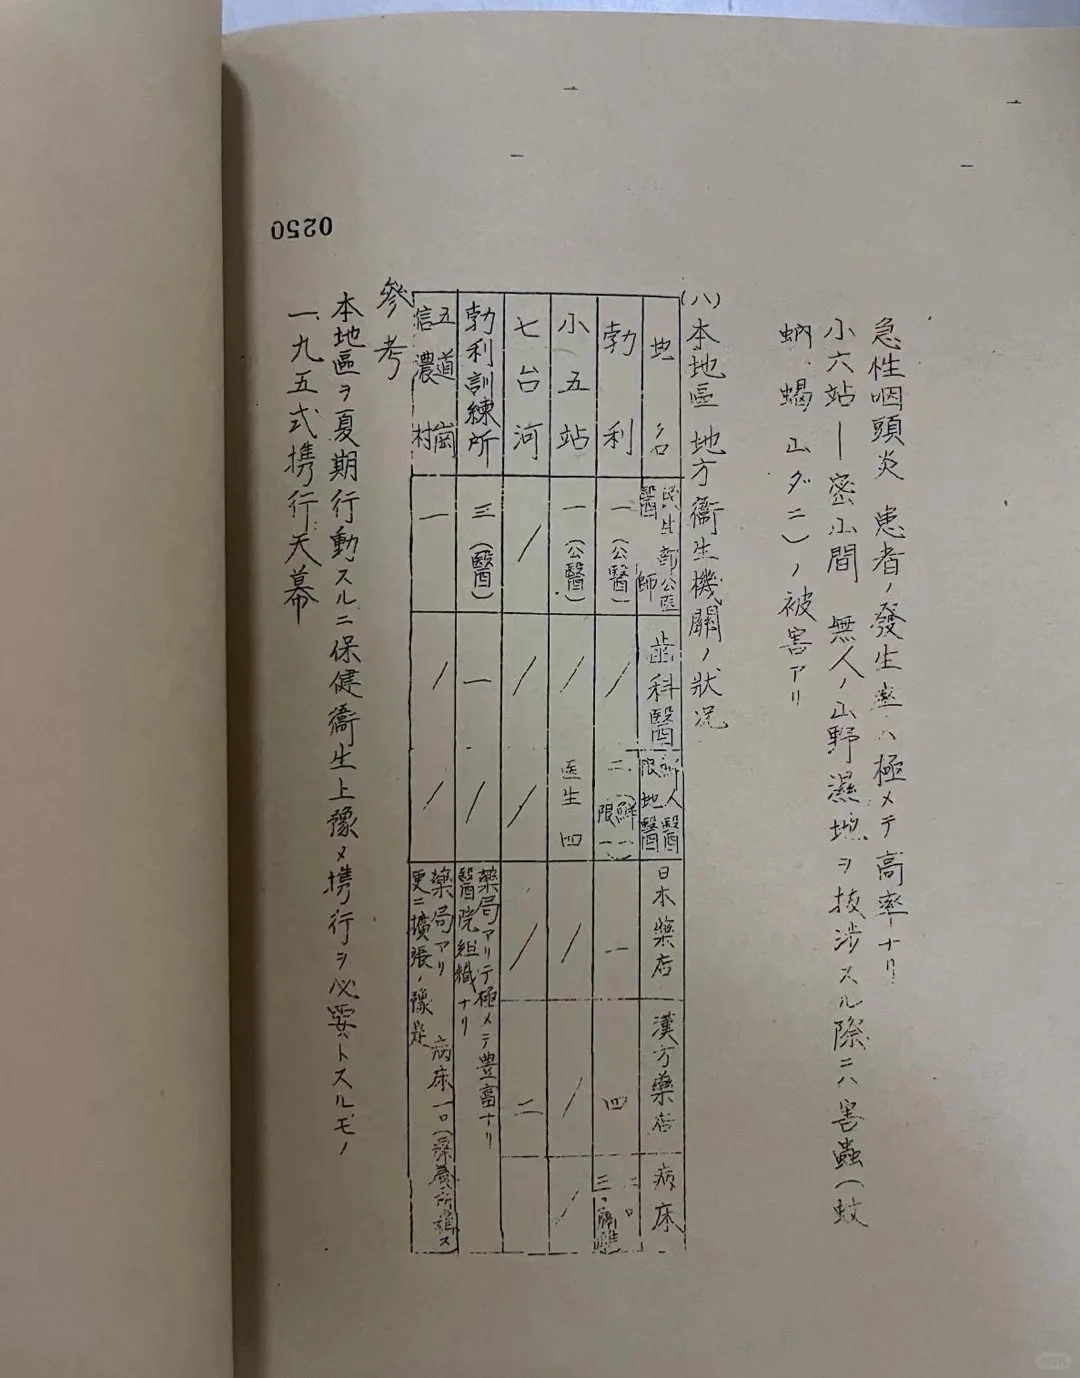 急性咽頭炎 患者ノ發生率ハ極メテ高率ナリ
小六站—密山間 無人ノ山野濕地ヲ抜渉スル際ニハ害蟲(蚊
蚋、蝎、山ダニ)ノ被害アリ
(八)本地區地方衞生機關ノ狀況
地名 民生部公医 醫師 歯科醫 鮮人醫 限地醫 日本藥店 漢方藥店 病床
勃利 一(公醫) / 二 一 四
小五站 一(公醫) / 医生四 / / /
七台河 / / / / 二
勃利訓練所 三(醫) 一 / 藥局アリテ極メテ豊富ナリ
醫院組織ナリ
五道崗
信濃村 一 / / 藥局アリ 病床一〇
更ニ擴張ノ豫定
參考
本地區ヲ夏期行動スルニ保健衞生上豫メ携行ヲ必要トスルモノ
一、九五式携行天幕
0250